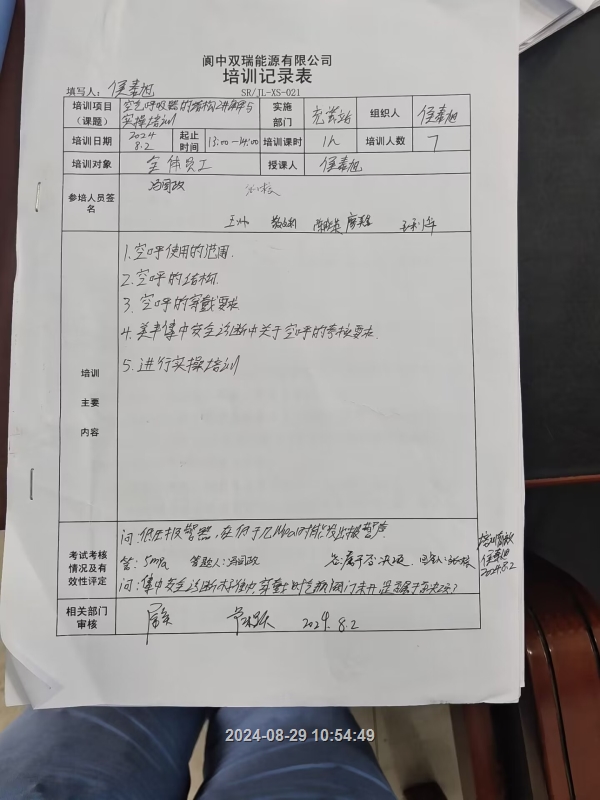 阆中双瑞能源有限公司
培训记录表
填写人：侯春旭 SR/JL-XS-021
培训项目（课题） 空气呼吸器的结构讲解与实操培训 实施部门 充装站 组织人 侯春旭
培训日期 2024 8.2 起止时间 13:00-14:00 培训课时 1h 培训人数 7
培训对象 全体员工 授课人 侯春旭
参培人员签名 冯国政
王小 廖 王利年
培训主要内容
1.空呼使用的范围.
2.空呼的结构.
3.空呼的穿戴要求.
4.关于集中安全诊断中关于空呼的考核要求.
5.进行实操培训
考试考核情况及有效性评定
问:低压报警器,在低于几MPa时能发出报警声.
答:5mpa 答题人:冯国政 答:属于否决项
问:集中安全诊断 穿戴时气瓶阀门未开,是否属于否决项?
培训有效
侯春旭
2024.8.2
相关部门审核 2024.8.2
2024-08-29 10:54:49